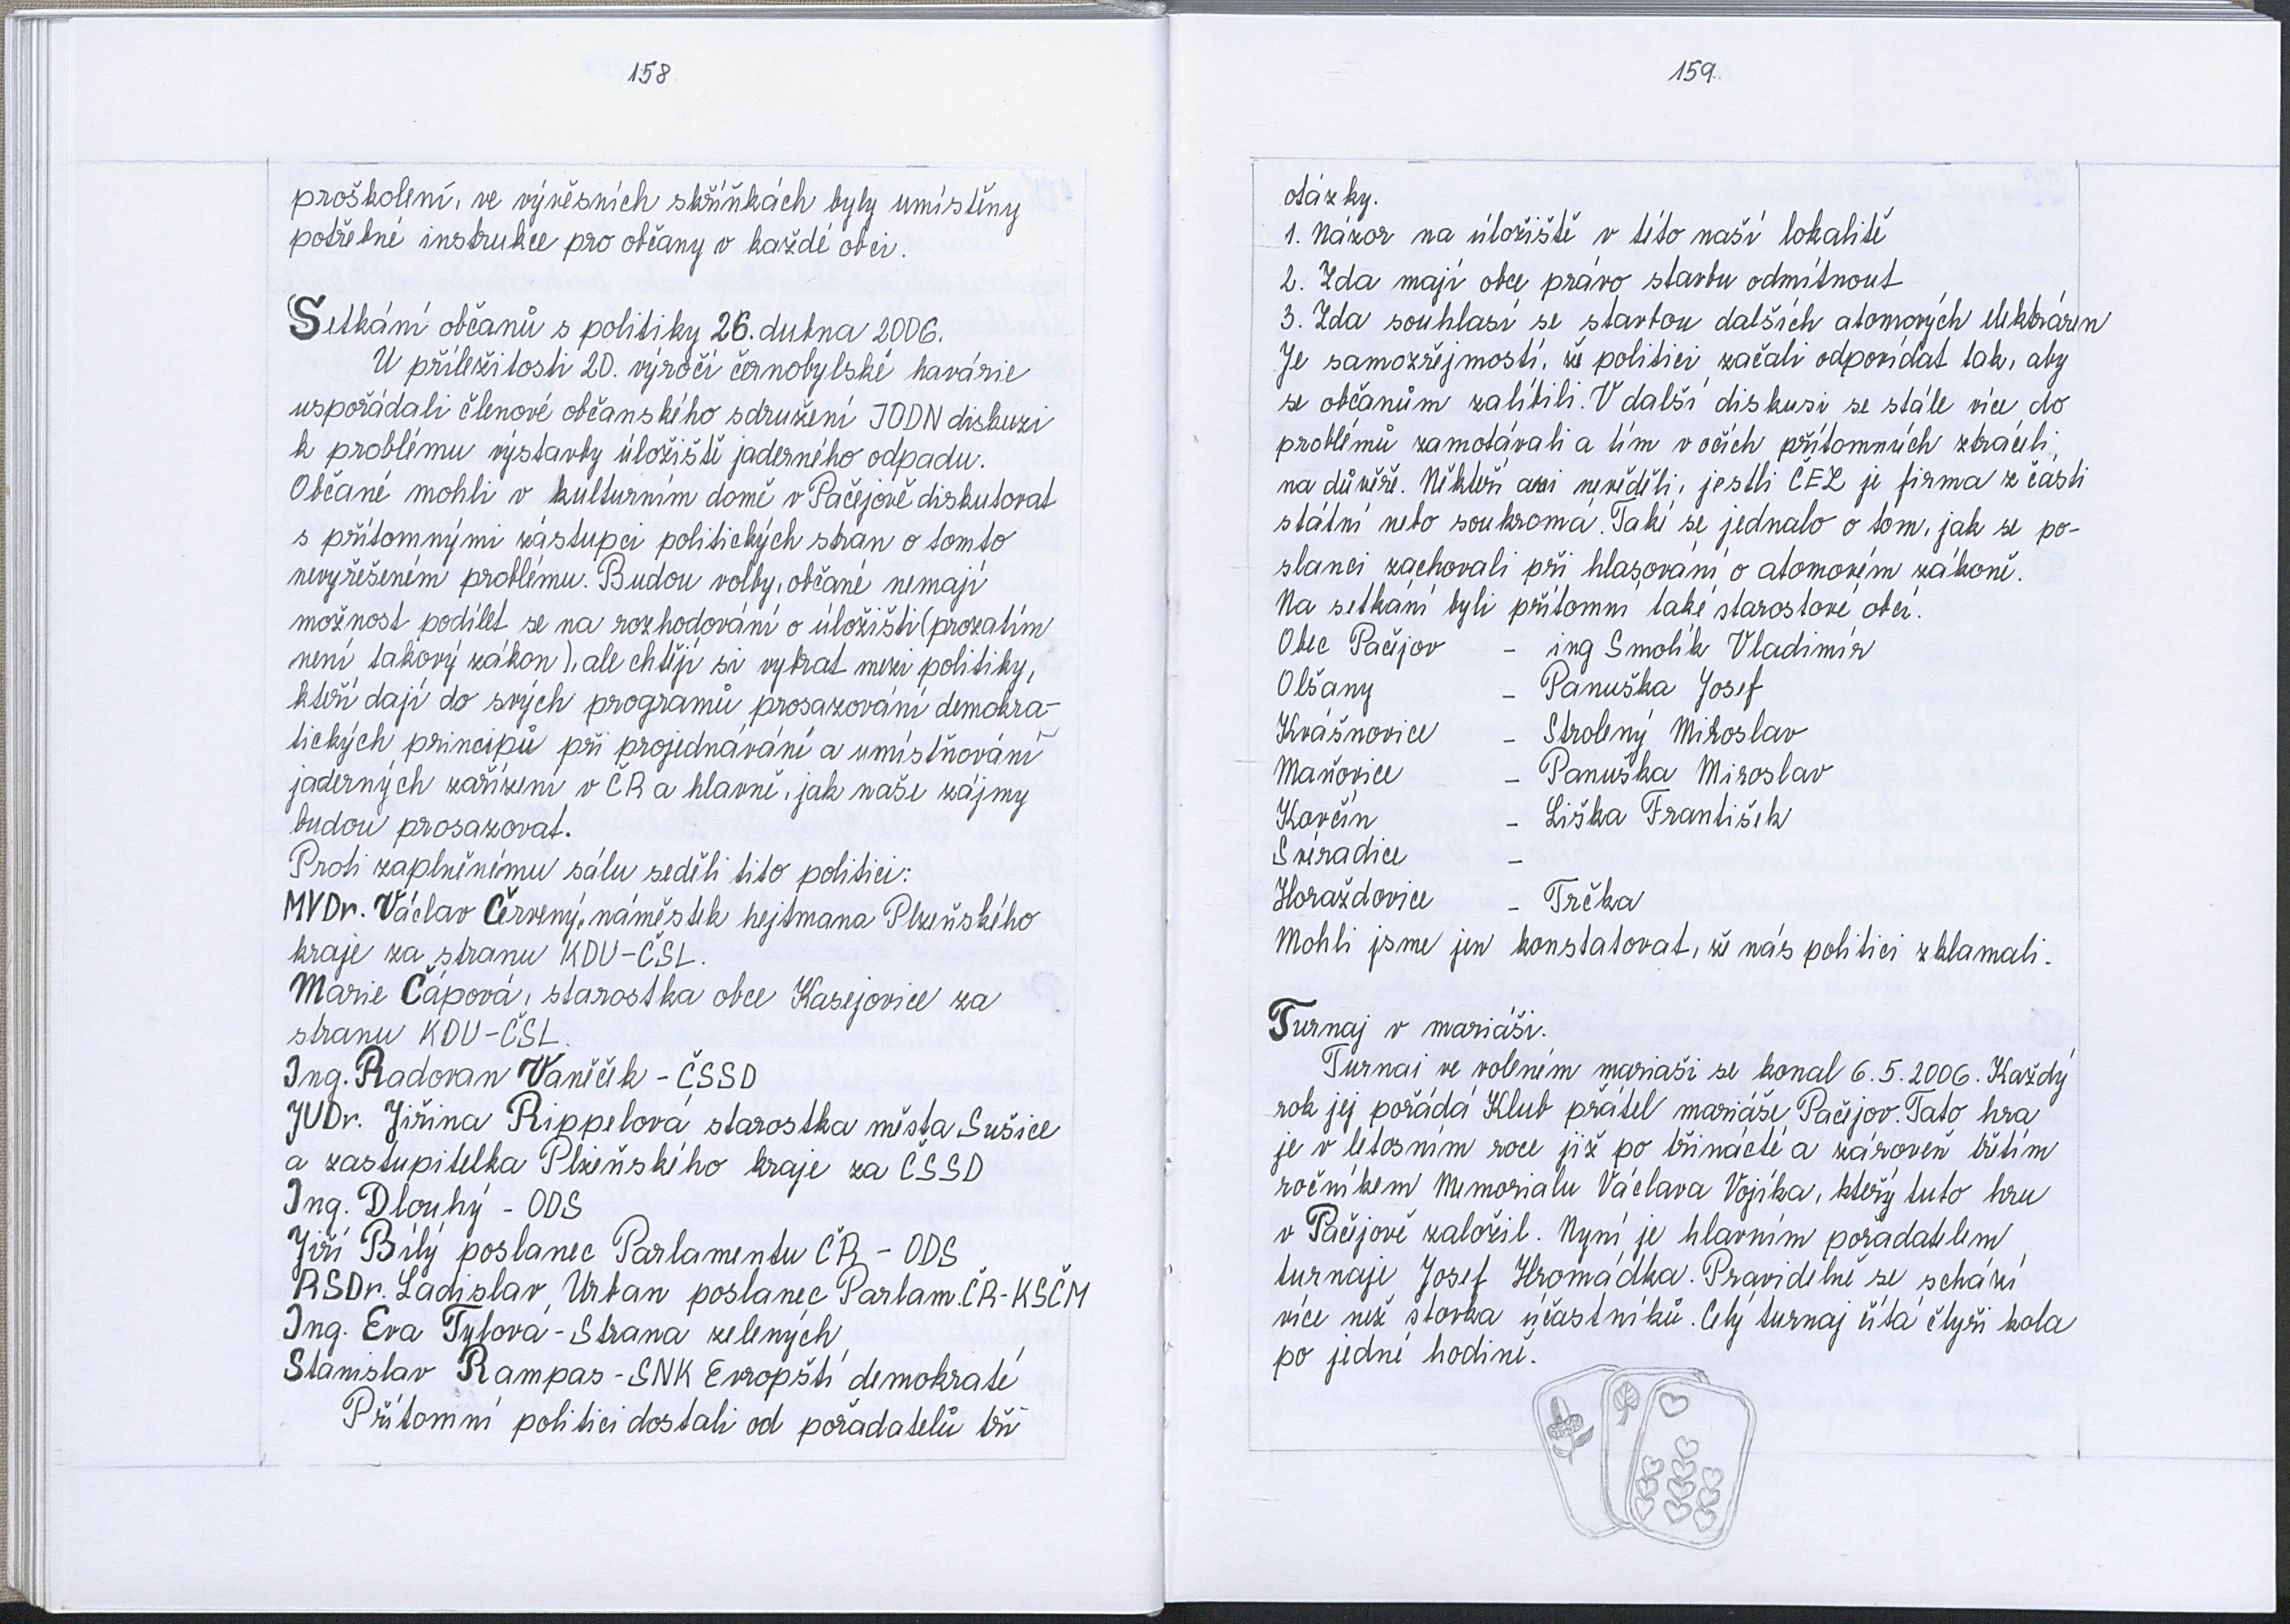 158
proškolení, ve vývěsních skříňkách byly umístěny
potřebné instrukce pro občany v každé obci.
Setkání občanů s politiky 26. dubna 2006.
U příležitosti 20. výročí černobylské havárie
uspořádali členové občanského sdružení JODN diskuzi
k problému výstavby úložiště jaderného odpadu.
Občané mohli v kulturním domě v Pačejově diskutovat
s přítomnými zástupci politických stran o tomto
nevyřešeném problému. Budou volby, občané nemají
možnost podílet se na rozhodování o úložišti (prozatím
není takový zákon), ale chtějí si vybrat mezi politiky,
kteří dají do svých programů prosazování demokra-
tických principů při projednávání a umístňování
jaderných zařízení v ČR a hlavně, jak naše zájmy
budou prosazovat.
Proti zaplněnému sálu seděli tito politici:
MVDr. Václav Červený, náměstek hejtmana Plzeňského
kraje za stranu KDU-ČSL.
Marie Čápová, starostka obce Kasejovice za
stranu KDU-ČSL.
Ing. Radovan Vaněček - ČSSD
JUDr. Jiřina Rippelová starostka města Sušice
a zastupitelka Plzeňského kraje za ČSSD
Ing. Dlouhý - ODS
Jiří Bílý poslanec Parlamentu ČR - ODS
RSDr. Ladislav Urban poslanec Parlam. ČR-KSČM
Ing. Eva Tylová - Strana zelených
Stanislav Rampas - SNK Evropští demokraté
Přítomní politici dostali od pořadatelů tři
159
otázky.
1. Názor na úložiště v této naší lokalitě
2. Zda mají obce právo stavbu odmítnout
3. Zda souhlasí se stavbou dalších atomových elektráren
Je samozřejmostí, že politici začali odpovídat tak, aby
se občanům zalíbili. V další diskusi se stále více do
problémů zamotávali a tím v očích přítomných ztráceli
na důvěře. Někteří ani nevěděli, jestli ČEZ je firma z části
státní nebo soukromá. Také se jednalo o tom, jak se po-
slanci zachovali při hlasování o atomovém zákoně.
Na setkání byli přítomni také starostové obcí.
Obec Pačejov - ing Smolík Vladimír
Olšany - Panuška Josef
Kvášňovice - Strolený Miroslav
Maňovice - Panuška Miroslav
Kovčín - Liška František
Svéradice -
Horažďovice - Trčka
Mohli jsme jen konstatovat, že nás politici zklamali.
Turnaj v mariáši.
Turnaj ve voleném mariáši se konal 6.5.2006. Každý
rok jej pořádá Klub přátel mariáše Pačejov. Tato hra
je v letosním roce již po třinácté a zároveň třetím
ročníkem Memorialu Václava Vojíka, který tuto hru
v Pačejově založil. Nyní je hlavním pořadatelem
turnaje Josef Hromádka. Pravidelně se schází
více než stovka účastníků. Celý turnaj čítá čtyři kola
po jedné hodině.